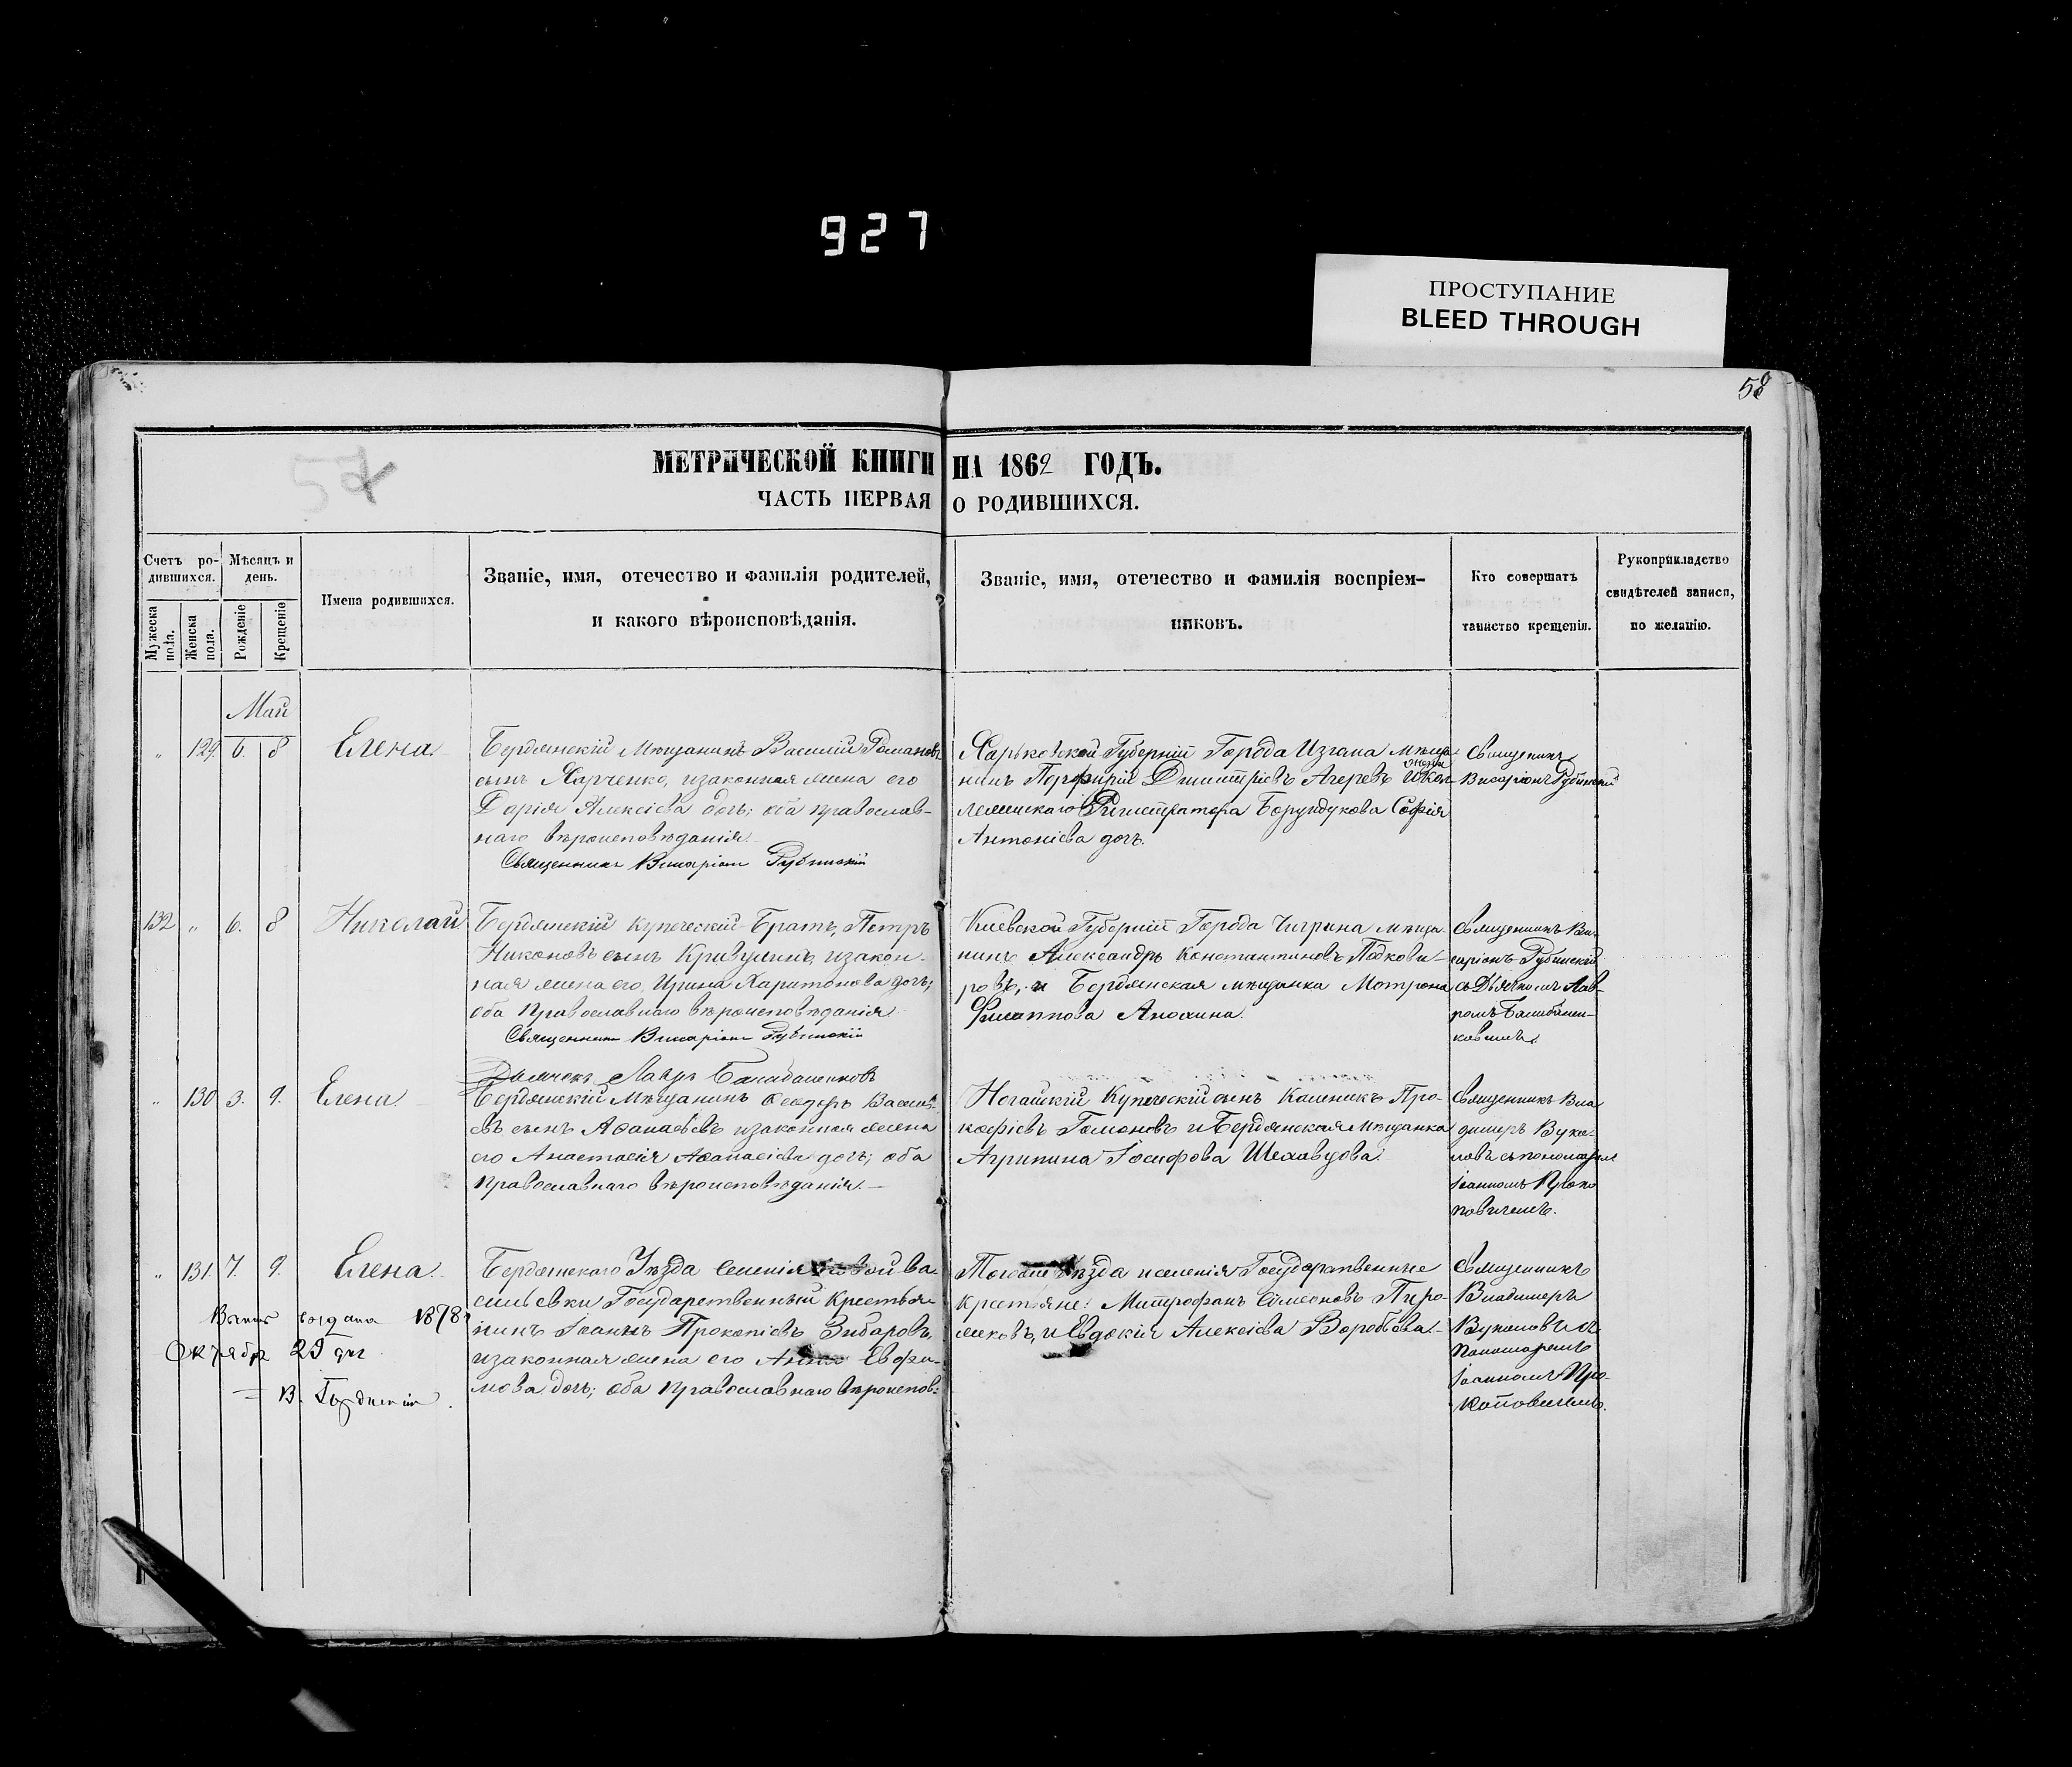 927
ПРОСТУПАНИЕ
BLEED THROUGH
58
57
МЕТРИЧЕСКОЙ КНИГИ НА 1862 ГОДЪ.
ЧАСТЬ ПЕРВАЯ О РОДИВШИХСЯ.
Счетъ ро-
дившихся.
Мужеска пола.
Женска пола.
Мѣсяцъ и
день.
Рожденіе
Крещеніе
Имена родившихся.
Званіе, имя, отечество и фамилія родителей,
и какого вѣроисповѣданія.
Званіе, имя, отечество и фамилія воспріем-
никовъ.
Кто совершатъ
таинство крещенія.
Рукоприкладство
свидѣтелей записи,
по желанію.
Май
„ 129. 6. 8 Елена
Бердянскій Мѣщанинъ Василій Романовъ
сынъ Харченко, изаконная жена его
Дарія Алексіева дочь; оба православ-
наго вѣроисповѣданія
Священникъ Висаріонъ Рубинскій
Харьковской Губерніи Города Изюма мѣща-
нинъ Порфирій Дмитріевъ Агеревъ и Кол-
жена
лежскаго Регистратора Борундукова Софія
Антоніева дочь.
Священникъ
Висаріонъ Рубинскій
132 „ 6. 8 Николай
Бердянскій купеческій Братъ, Петръ
Никоновъ сынъ Кривулинъ, изакон-
ная жена его, Ирина Харитонова дочь;
оба Православнаго вѣроисповѣданія
Священникъ Висаріонъ Рубинскій
Дьячекъ Лавръ Балабаненковъ
Кіевской Губерніи Города Чигрина мѣща-
нинъ Александръ Константиновъ Подкови-
ровъ, и Бердянская мѣщанка Мотрона
Филиппова Анохина.
Священникъ Ви-
саріонъ Рубинскій
съ Дьячкомъ Лав-
ромъ Балабанен-
ковымъ
„ 130 3. 9. Елена
Бердянскій Мѣщанинъ Ѳеодоръ Василь-
евъ сынъ Аѳанасьевъ изаконная жена
его Анастасія Аѳанасіева дочь; оба
православнаго вѣроисповѣданія.
Ногайскій Купеческій сынъ Каленикъ Про-
кофіевъ Гамоновъ и Бердянская Мѣщанка
Агрипина Іосифова Шехавцова.
Священникъ Вла-
димеръ Вуко-
ловъ съ пономаремъ
Іоанномъ Проко
повичемъ.
„ 131. 7. 9. Елена.
Бердянскаго Уѣзда Селенія Новой Ва-
сильевки Государственный Крестья-
нинъ Іоаннъ Прокопіевъ Зибаровъ,
изаконная жена его Анна Евфи-
мова дочь; оба православнаго вѣроисповѣ:
Тогоже Уѣзда и селенія Государственные
крестьяне: Митрофанъ Симеоновъ Пиро-
жковъ, и Евдокія Алексіева Воробьева.
Священникъ
Владимеръ
Вуколовъ съ
Пономаремъ
Іоанномъ Про-
коповичемъ.
создана 1878
Октября 25 дня